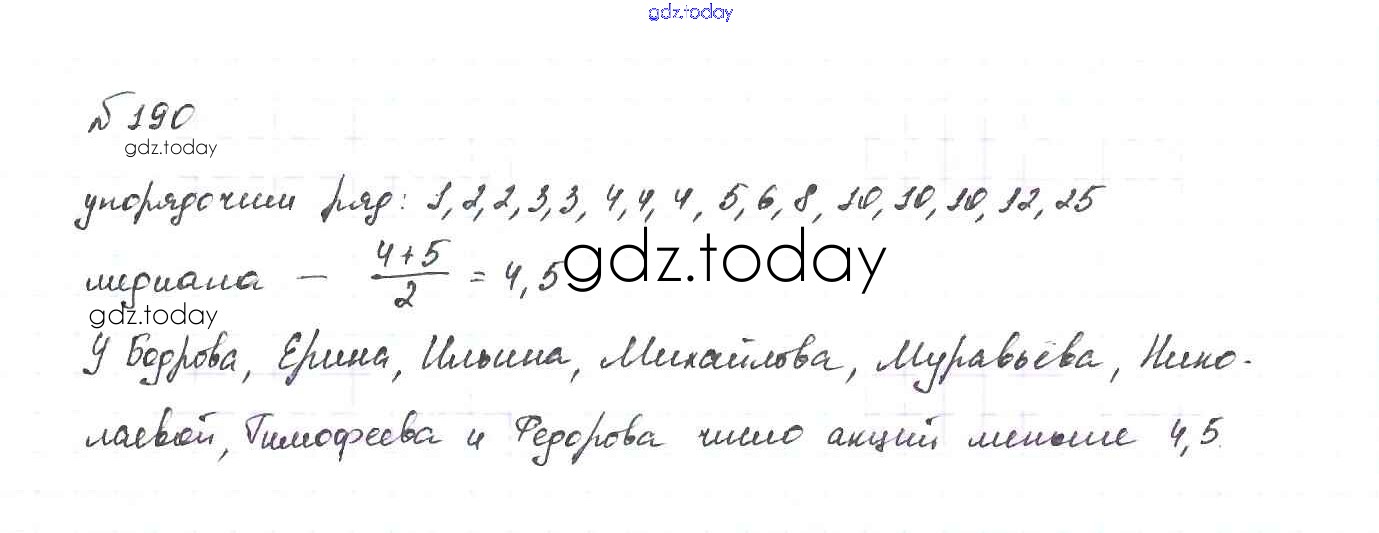 gdz.today
№ 190
gdz.today
упорядочим ряд: 1, 2, 2, 3, 3, 4, 4, 4, 5, 6, 8, 10, 10, 10, 12, 25
медиана – 4+5/2 = 4,5
gdz.today
gdz.today
У Бодрова, Ерина, Ильина, Михайлова, Муравьёва, Нико-
лаевой, Тимофеева и Федорова число акций меньше 4,5.